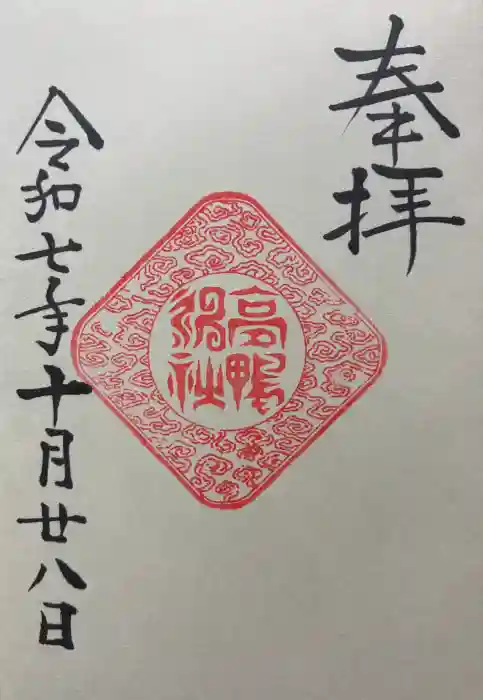 奉拝
高鴨
神社
令和七年十月廿八日